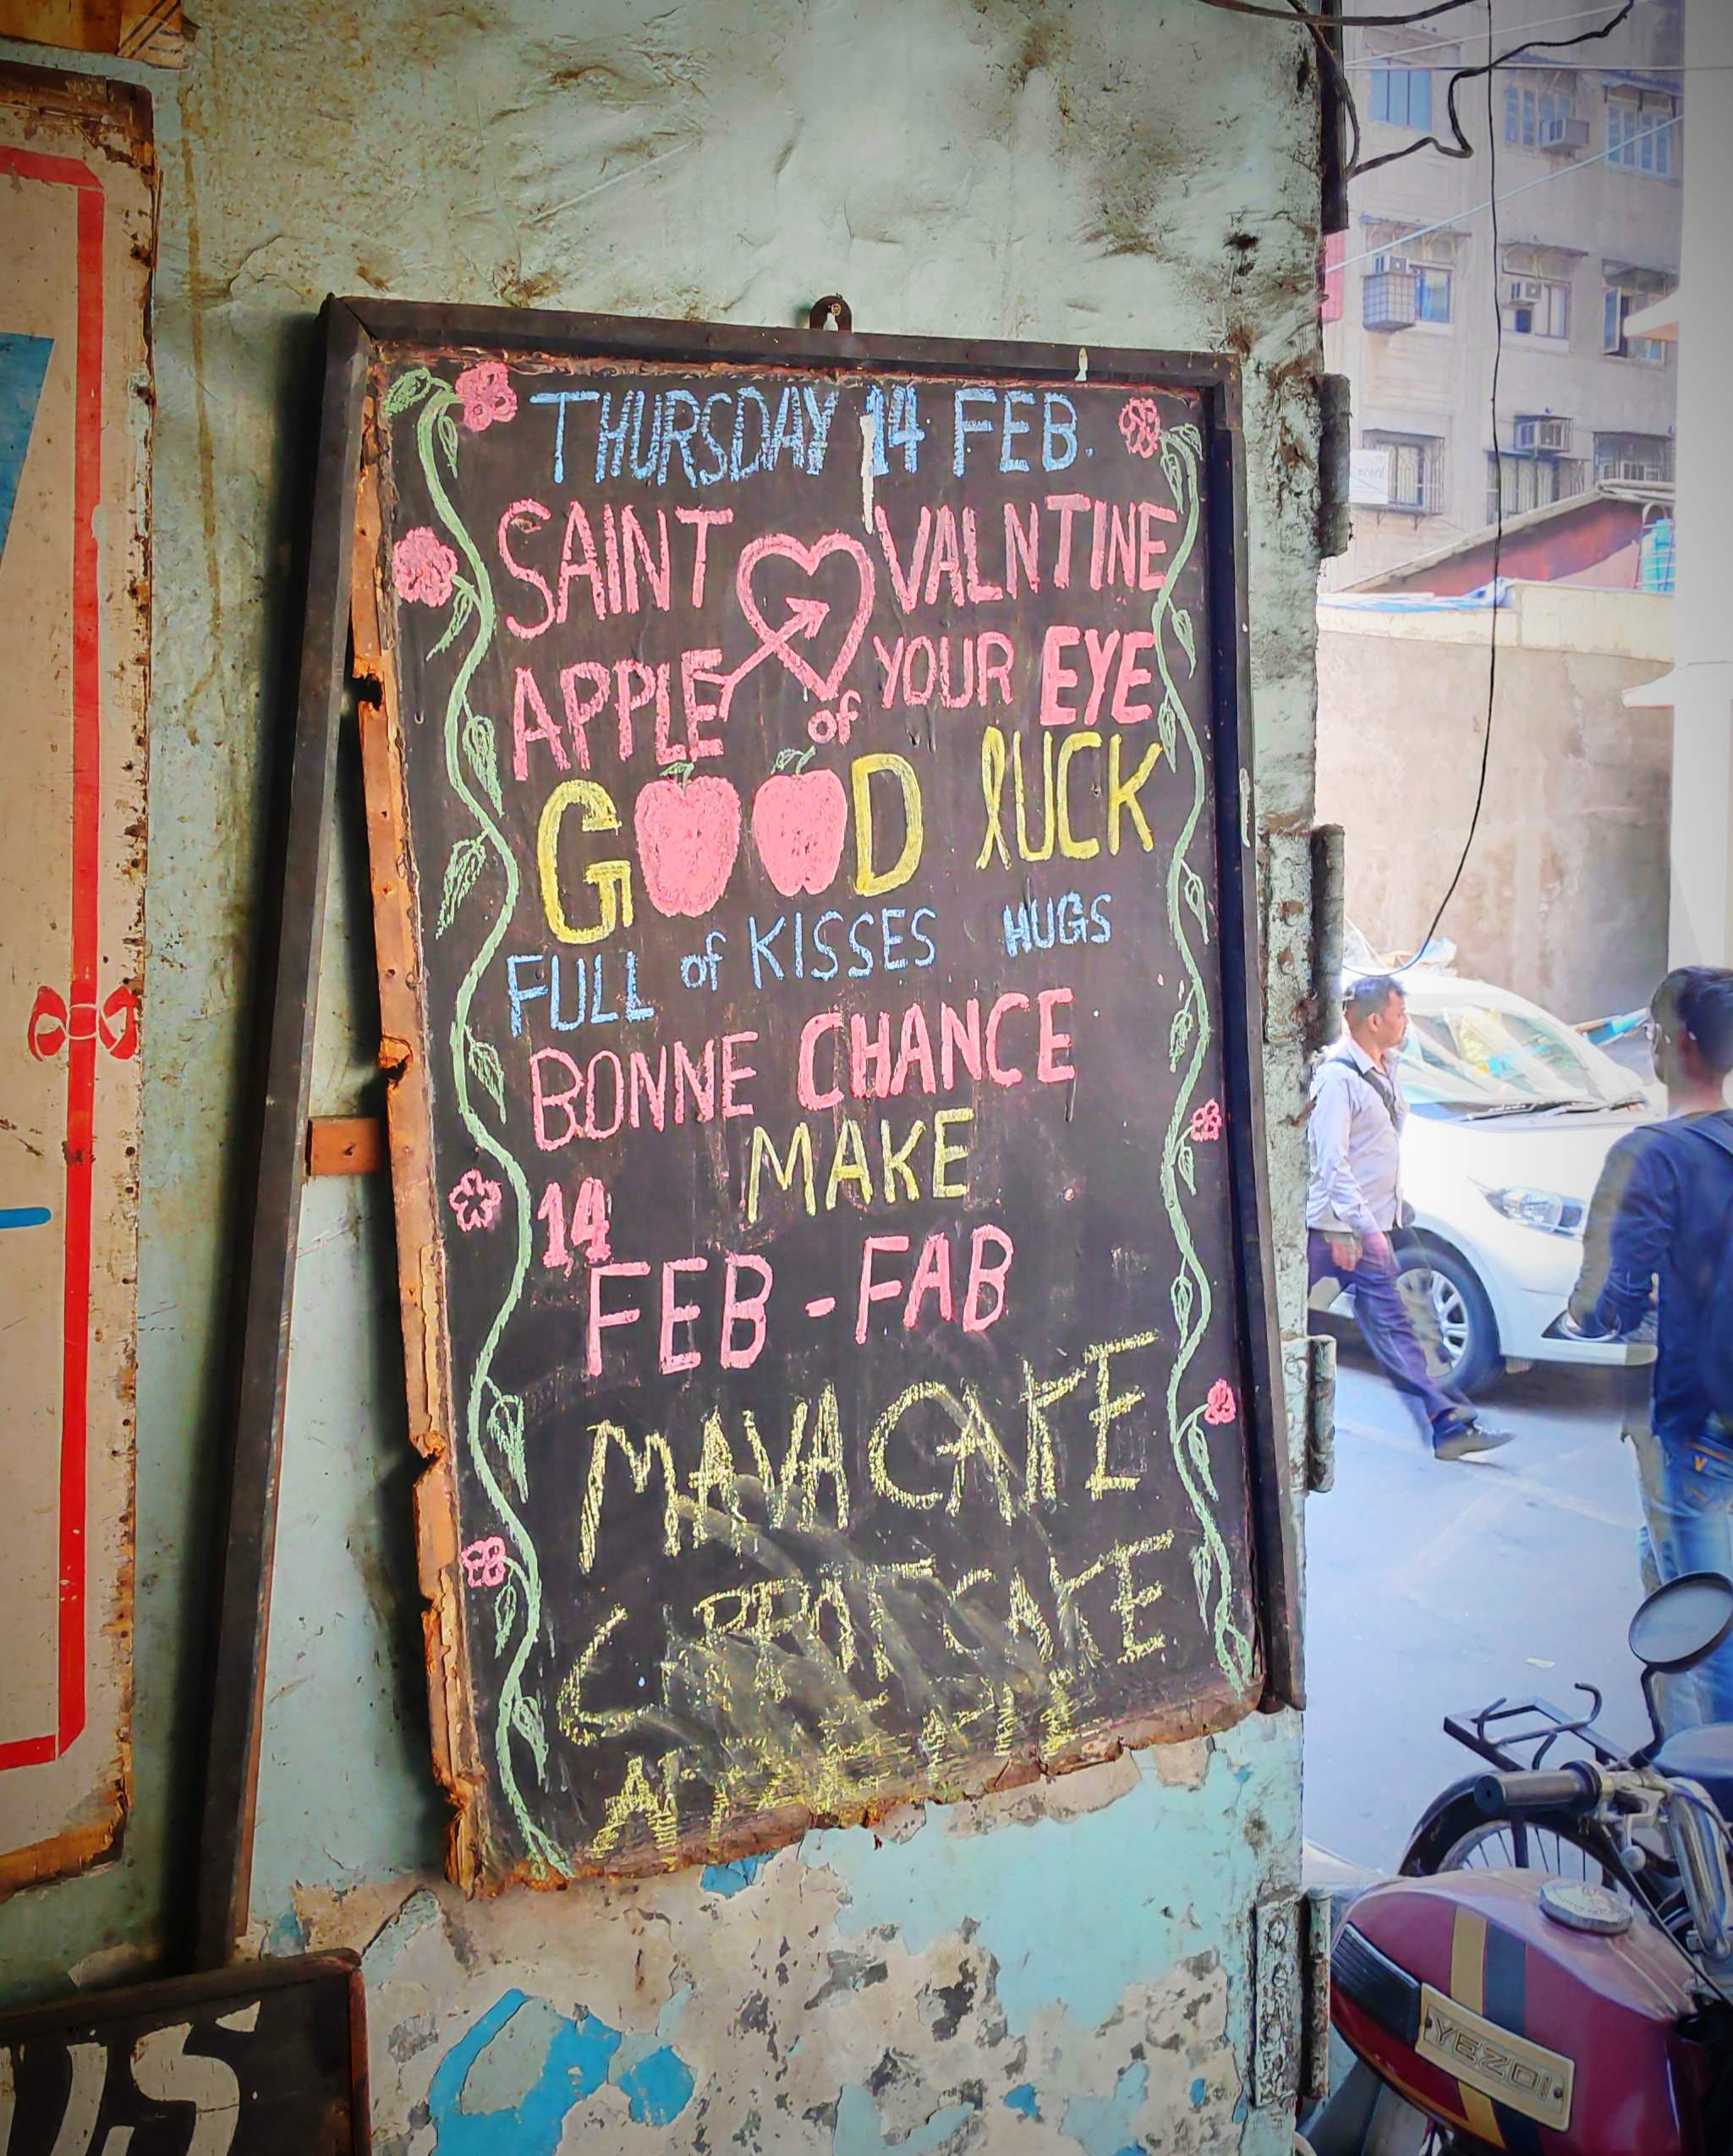 THURSDAY 14 FEB.
SAINT VALNTINE
APPLE of YOUR EYE
GOOD LUCK
FULL of KISSES HUGS
BONNE CHANCE
MAKE
14
FEB - FAB
MAVA CAKE
CAKE
YEZDI